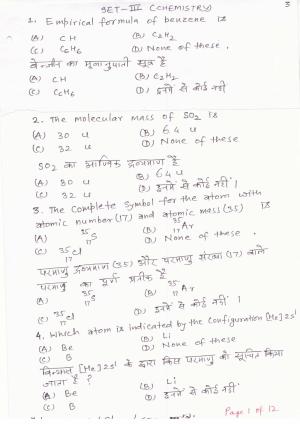 SET-III (CHEMISTRY)
3
1. Empirical formula of benzene is
(A) CH (B) C2H2
(C) C6H6 (D) None of these.
बेन्जीन का मूलानुपाती सूत्र है
(A) CH (B) C2H2
(C) C6H6 (D) इनमें से कोई नहीं
2. The molecular mass of SO2 is
(A) 30 u (B) 64 u
(C) 32 u (D) None of these
SO2 का आण्विक द्रव्यमान है
(A) 30 u (B) 64 u
(C) 32 u (D) इनमें से कोई नहीं।
3. The Complete Symbol for the atom with
atomic number (17) and atomic mass (35) is
(A) 35 17 S (B) 35 17 Ar
(C) 35 17 Cl (D) None of these.
परमाणु द्रव्यमान (35) और परमाणु संख्या (17) वाले
परमाणु का पूर्ण प्रतीक है
(A) 35 17 S (B) 35 17 Ar
(C) 35 17 Cl (D) इनमें से कोई नहीं।
4. Which atom is indicated by the Configuration [He] 2s1
(A) Be (B) Li
(C) B (D) None of these
विन्यास [He] 2s1 के द्वारा किस परमाणु को सूचित किया
जाता है?
(A) Be (B) Li
(C) B (D) इनमें से कोई नहीं
Page 1 of 12